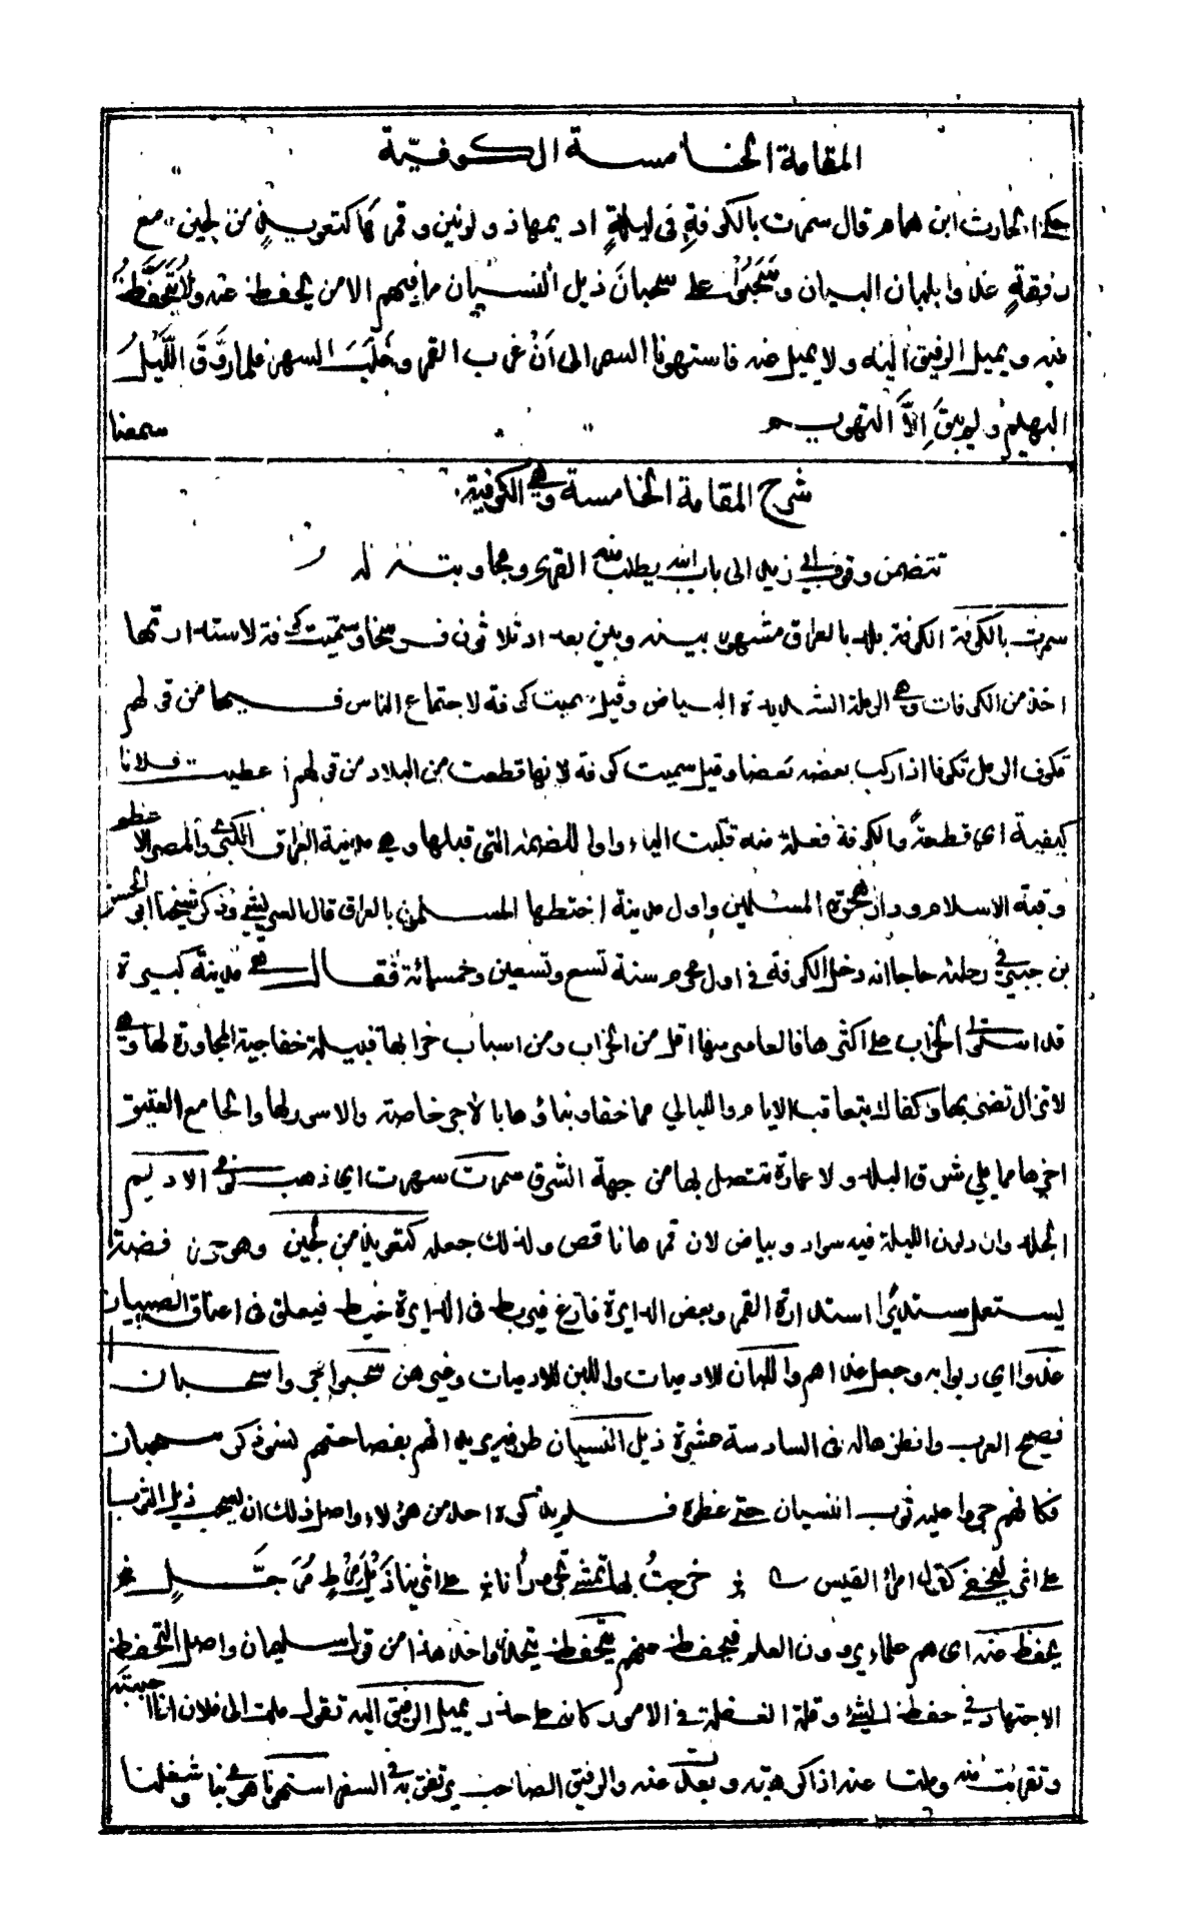 المقامة الخامسة الكوفية
حكى الحارث ابن همام قال سمرت بالكوفة في ليلة اديمها ذو لونين وقمرها كتعويذ من لجين مع
رفقة غذوا بلبان البيان وسحبوا على سحبان ذيل النسيان ما فيهم الا من يحفظ عنه ولا يتحفظ
منه ويميل الرفيق اليه ولا يميل عنه فاستهوانا السمر الى أن غرب القمر وغلب السهر فلما روق الليل
البهيم ولم يبق إلا التهويم سمعنا
شرح المقامة الخامسة وهي الكوفية
تتضمن وقوف ابي زيد الى باب يطلب منه القرى ومجاوبته له
سمرت بالكوفة الكوفة بلد بالعراق مشهور بينه وبين بغداد ثلاثون فرسخا وسميت كوفة لاستدارتها
اخذ من الكوفات وهي الرملة الشديدة البياض وقيل سميت كوفة لاجتماع الناس فيها من قولهم
تكوف الرمل تكوفا اذا ركب بعضه بعضا وقيل سميت كوفة لانها قطعت من البلاد من قولهم اعطيت فلانا
كيفية اي قطعة والكوفة فعلة منه قلبت الياء واوا للضمة التي قبلها وهي مدينة العراق الكبرى والمصر الاعظم
وقبة الاسلام ودار هجرة المسلمين واول مدينة اختطها المسلمون بالعراق قال وذكر شيخنا ابو الحسين
بن جبير في رحلته حاجا انه دخل الكوفة في اول محرم سنة تسع وتسعين وخمسمائة فقال هي مدينة كبيرة
قد استولى الخراب على اكثرها فالعامر منها اقل من الخراب ومن اسباب خرابها قبيلة خفاجية المجاورة لها وهي
لا تزال تضر بها وكفاك بتعاقب الايام والليالي وبناؤها بالآجر خاصة ولا سور لها والجامع العتيق
اخرها مما يلي شرق البلد ولا عمارة تتصل بها من جهة الشرق سمرت سهرت اي ذهب الاديم
الجلد واراد لون الليلة فيه سواد وبياض لان قمرها ناقص ولذلك جعله كتعويذ من لجين وهو فضة
يستعمل مستديرا استدارة القمر وبعض الدايرة فارغ فيربط في الدايرة خيط فيعلق في اعناق الصبيان
غذوا اي ربوا به وجعل غذاهم واللبان للادميات واللبن للادميات وغيرهن سحبوا جروا سحبان
فصيح العرب وانظر حاله في السادسة عشرة ذيل النسيان طرفه يريد انهم بفصاحتهم نسوا ذكر سحبان
فكانهم جروا عليه ثوب النسيان حتى غطوه فلم يذكره احد من هؤلاء واصل ذلك ان يسحب ذيل الثوب
على اثر ليخفى كقول امرئ القيس خرجت بها تمشي تجر وراءنا على اثرينا ذيل مرط مرجل
يحفظ عنه اى هم علماء يروون العلم فيحفظ عنهم يتحفظ يتحذر واخذ هذا من قول سليمان واصل التحفظ
الاجتهاد في حفظ الشيء وقلة الغفلة في الامور كانه على حذر يميل الرفيق اليه تقول ملت الى فلان اذا احببته
وتقربت منه وملت عنه اذا كرهته وبعدت عنه والرفيق الصاحب يرتفق به في السفر استهوانا هوى بنا وشغلنا